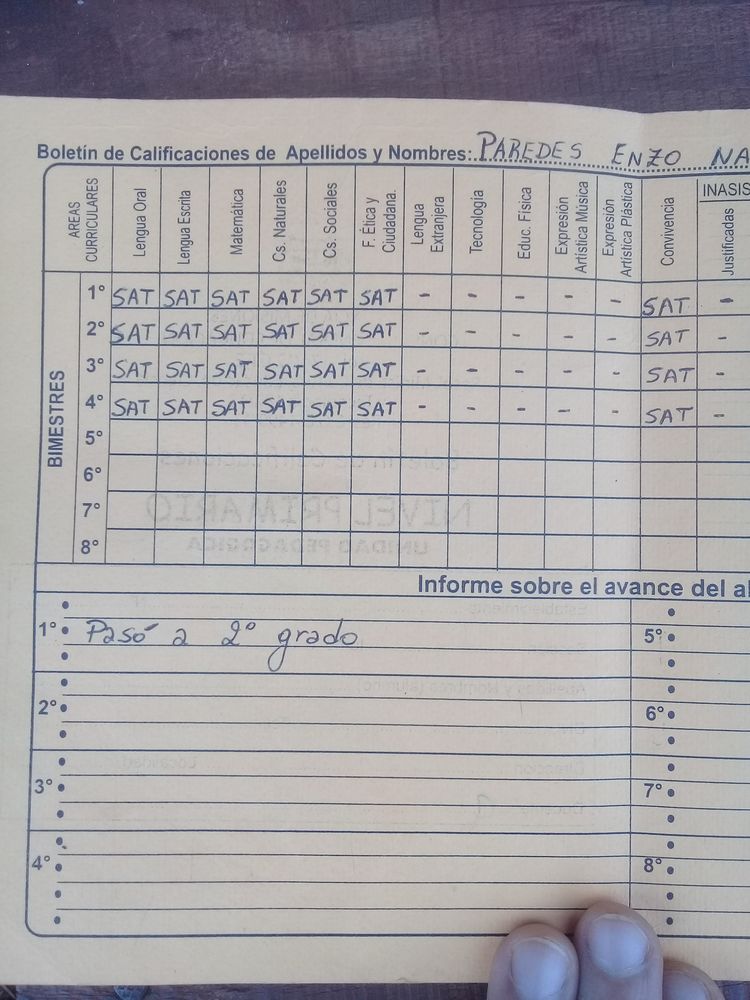 Boletín de Calificaciones de Apellidos y Nombres: PAREDES ENZO NA
AREAS CURRICULARES
Lengua Oral
Lengua Escrita
Matemática
Cs. Naturales
Cs. Sociales
F. Ética y Ciudadana.
Lengua Extranjera
Tecnología
Educ. Física
Expresión Artística Música
Expresión Artística Plástica
Convivencia
INASIS
Justificadas
BIMESTRES
1° SAT SAT SAT SAT SAT SAT - - - - - SAT -
2° SAT SAT SAT SAT SAT SAT - - - - - SAT -
3° SAT SAT SAT SAT SAT SAT - - - - - SAT -
4° SAT SAT SAT SAT SAT SAT - - - - - SAT -
5°
6°
7°
8°
Informe sobre el avance del al
1° Pasó a 2° grado
2°
3°
4°
5°
6°
7°
8°